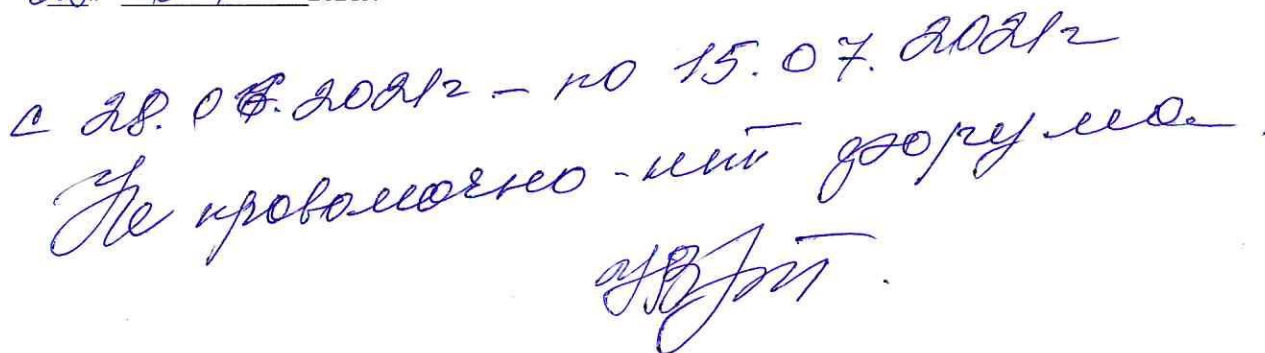 с 28.06.2021г - по 15.07.2021г
Не правомочно - нет форума.